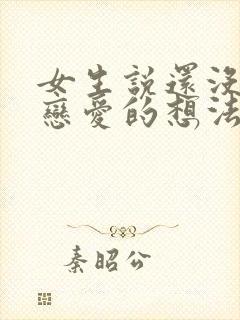 女生說還沒
戀愛的想法
秦昭公